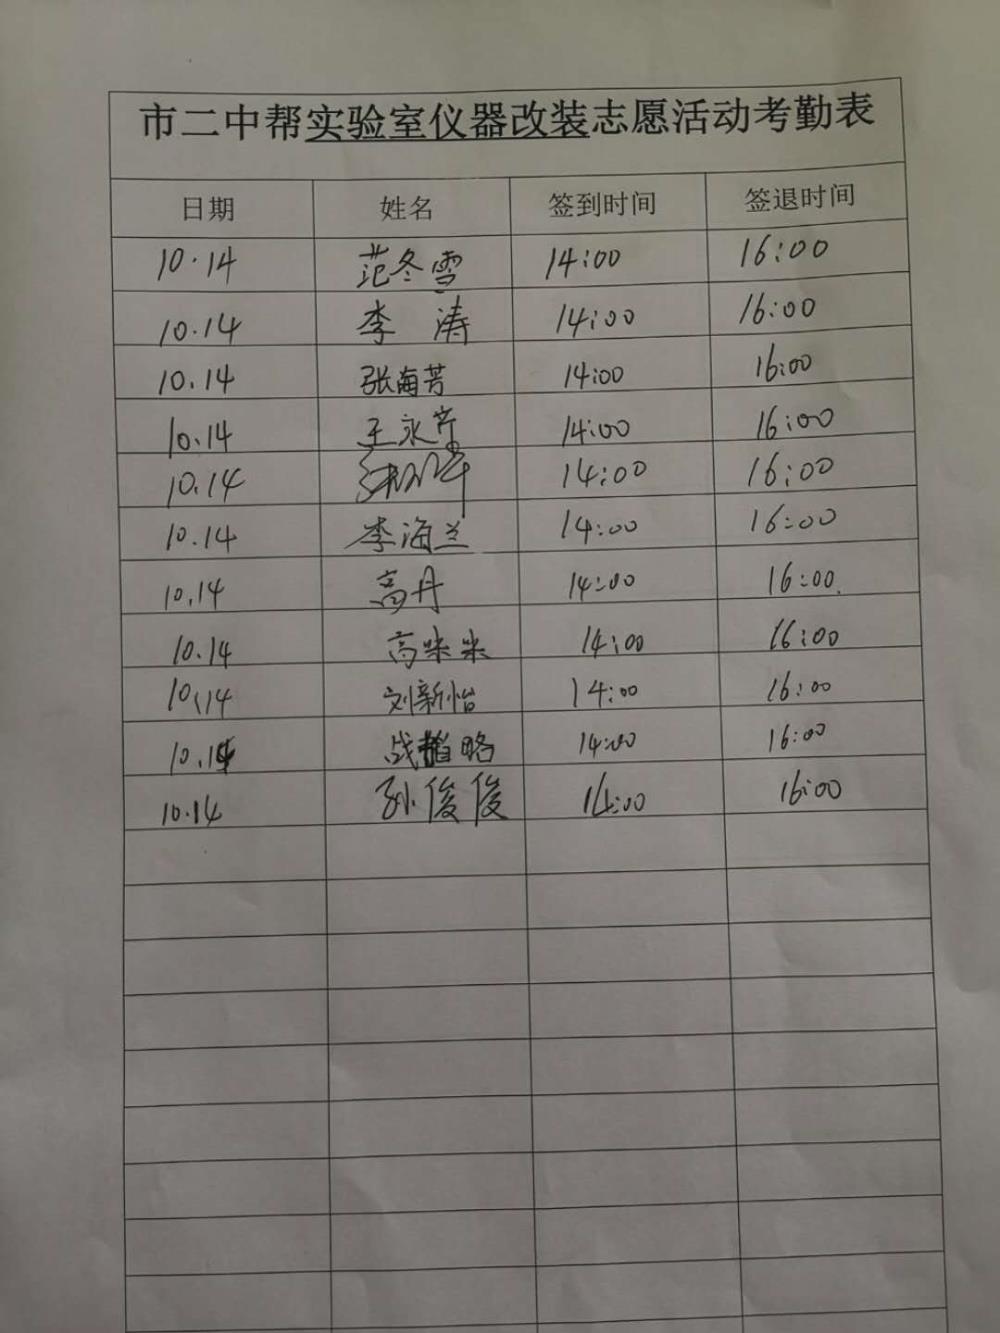 市二中帮实验室仪器改装志愿活动考勤表
日期 姓名 签到时间 签退时间
10.14 范冬雪 14:00 16:00
10.14 李 涛 14:00 16:00
10.14 张海芳 14:00 16:00
10.14 王永芹 14:00 16:00
10.14 14:00 16:00
10.14 李海兰 14:00 16:00
10.14 高丹 14:00 16:00
10.14 高咪咪 14:00 16:00
10.14 刘新怡 14:00 16:00
10.14 战 略 14:00 16:00
10.14 孙俊俊 14:00 16:00